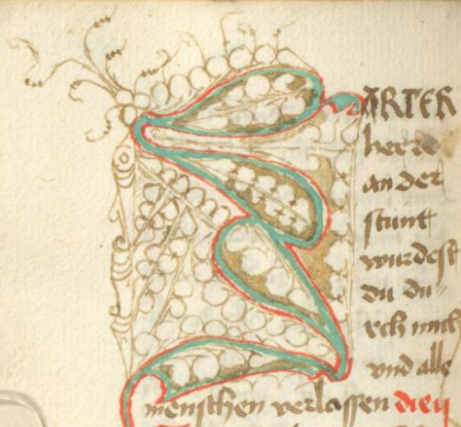 ARTER
herre
an der
stunt
wurdest
du du-
rch mich
vnd alle
menschen verlassen dien